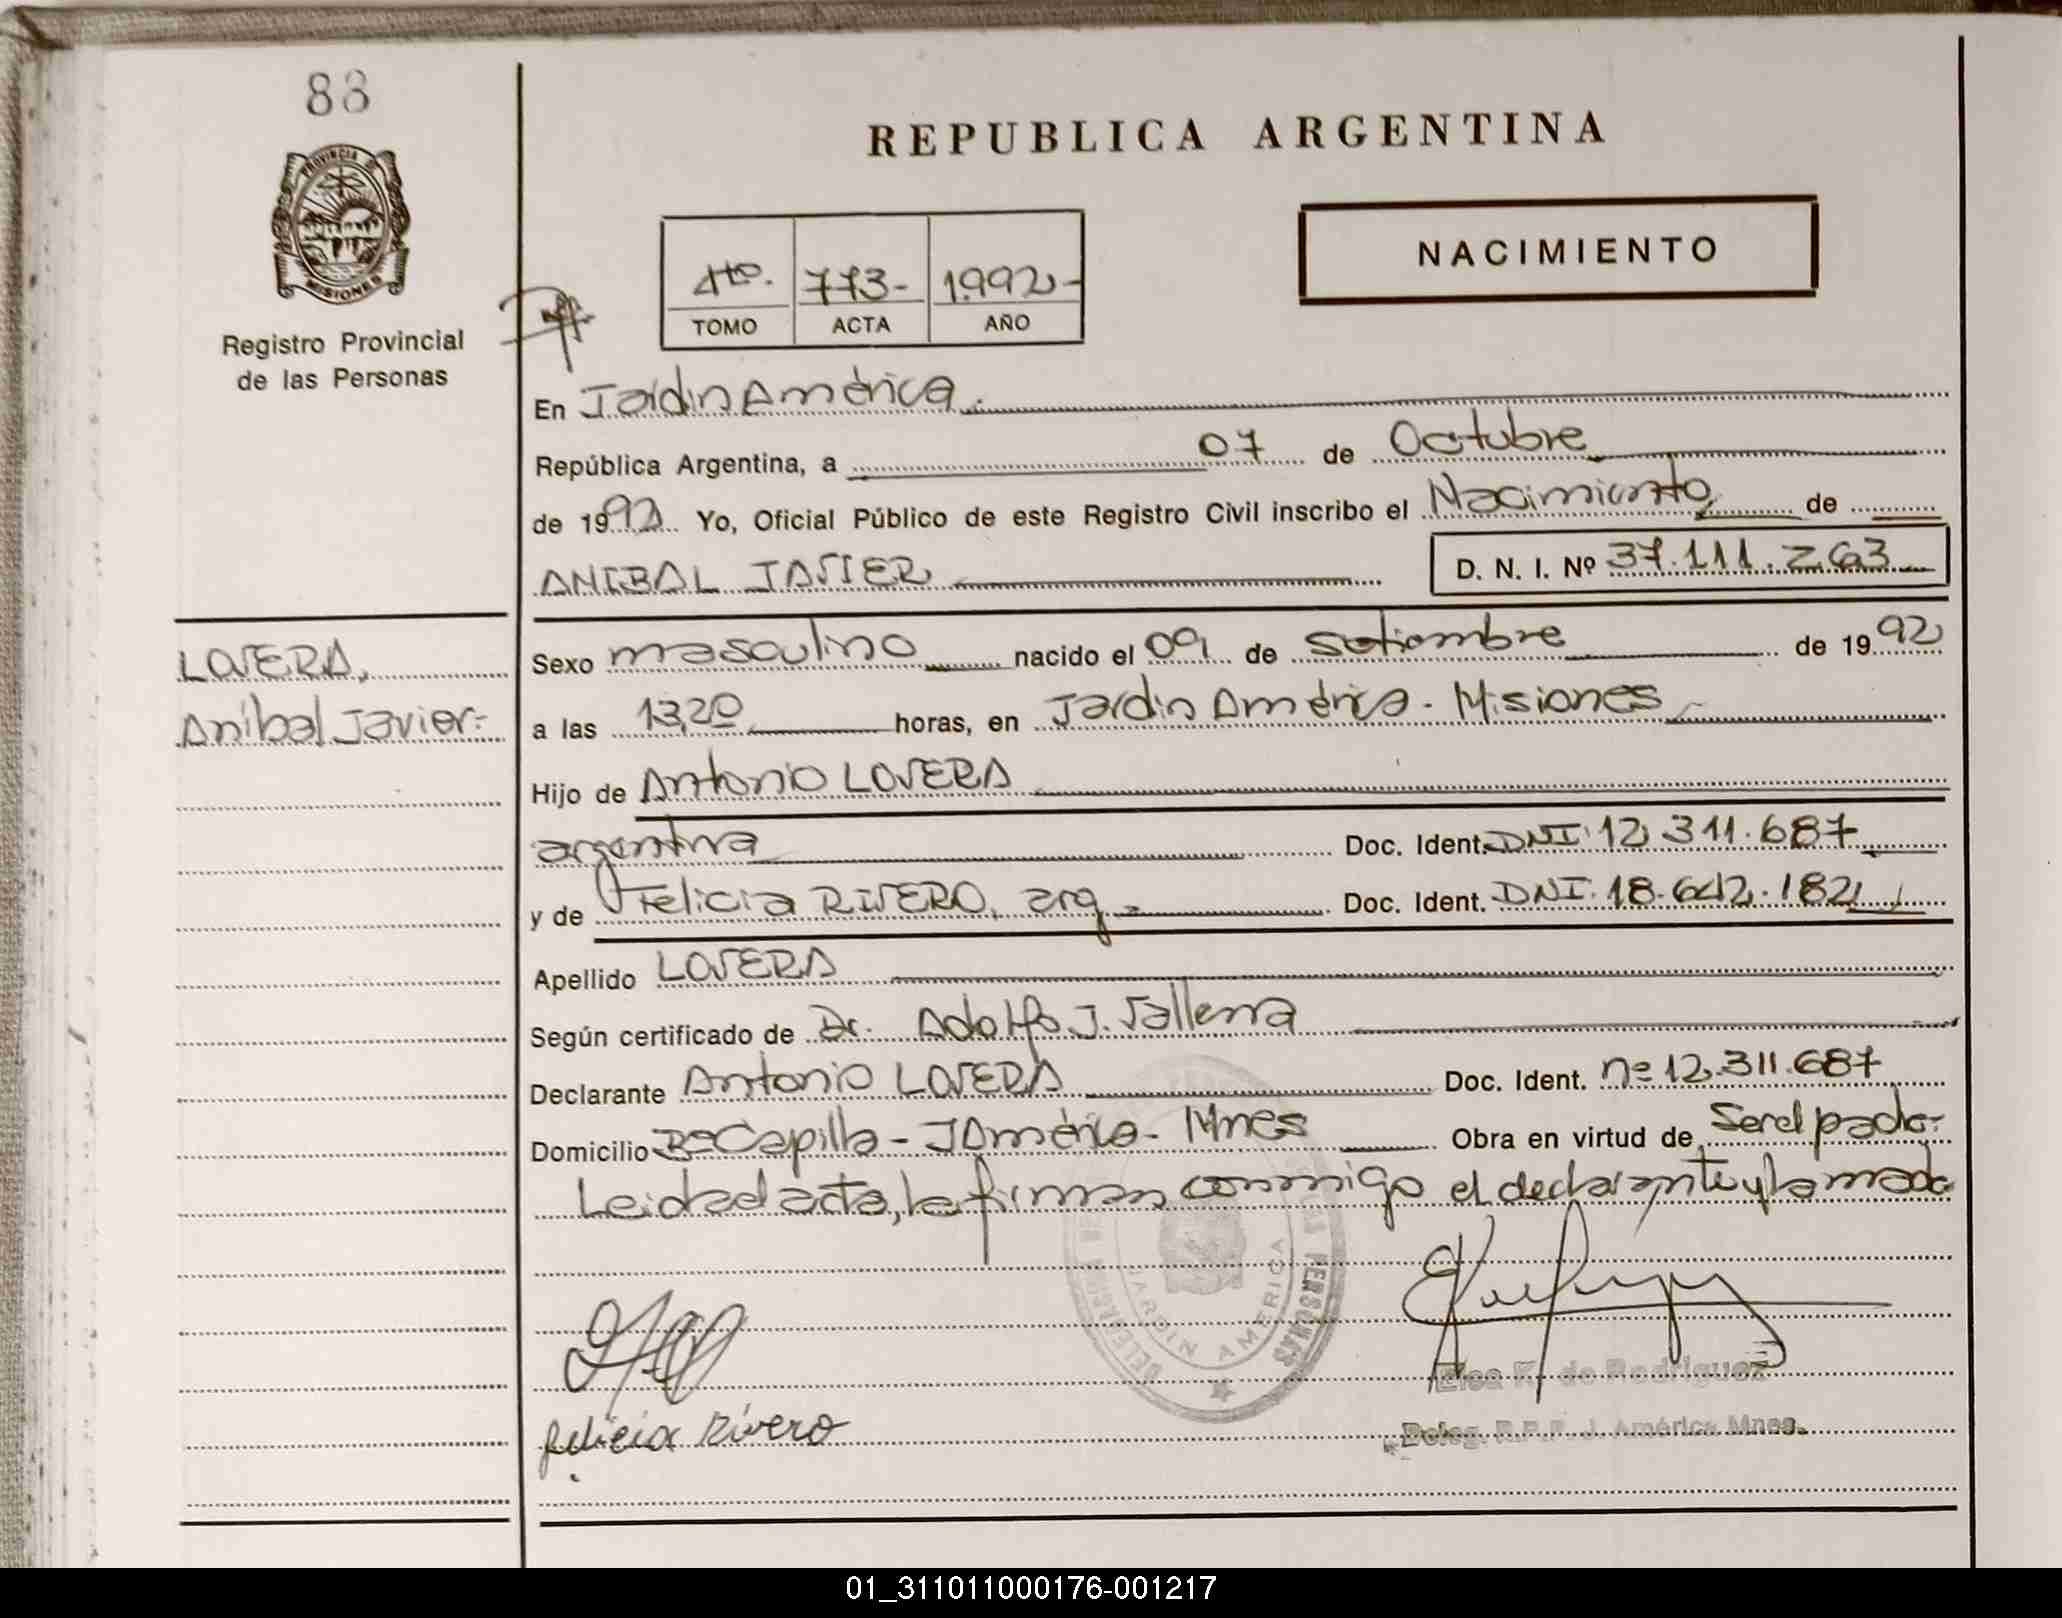 88
REPUBLICA ARGENTINA
PROVINCIA DE
MISIONES
Registro Provincial
de las Personas
4to. 773- 1992-
TOMO ACTA AÑO
NACIMIENTO
En Jardin América.
República Argentina, a 07 de Octubre
de 1992 Yo, Oficial Público de este Registro Civil inscribo el Nacimiento de
ANIBAL JAVIER D. N. I. Nº 37.111.263
LOVERA,
Aníbal Javier.-
Sexo masculino nacido el 09 de setiembre de 1992
a las 13,20 horas, en Jardin América. Misiones
Hijo de Antonio LOVERA
argentina Doc. Ident. DNI: 12.311.687
y de Felicia RIVERO, arg. Doc. Ident. DNI: 18.642.182
Apellido LOVERA
Según certificado de Dr. Adolfo J.
Declarante Antonio LOVERA Doc. Ident. nº 12.311.687
Domicilio Bº Capilla - J América - Mnes Obra en virtud de Ser el padre.-
Leida el acta, la firman conmigo el declarante y la madre
JARDIN AMERICA
Felicia Rivero
Elsa K. de Rodriguez
Deleg. R.P.P. J. América Mnes.
01_311011000176-001217